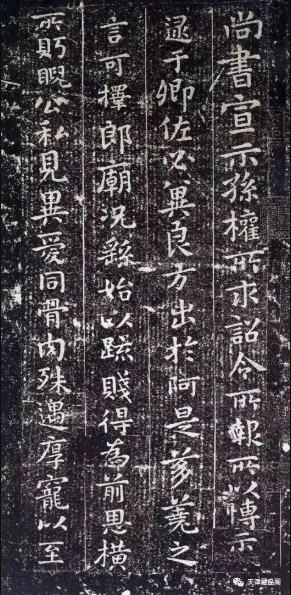 尚書宣示孫權所求詔令所報所以博示
逮于卿佐必異良方出於阿是芻蕘之
言可擇郎廟況繇始以疏賤得為前恩橫
所貺睨公私見異愛同骨肉殊遇厚寵以至
天津藏品局